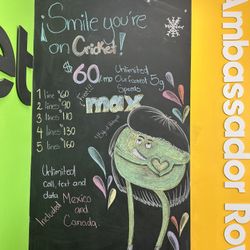 ¡Smile you're
on Cricket!
$60/mo
Unlimited
Our Fastest 5g
Speeds
1 line $60
2 lines $90
3 lines $110
4 lines $130
5 lines $160
max
Unlimited
Call, text and
data
Included
Mexico
and
Canada
et
Ambassador Ro